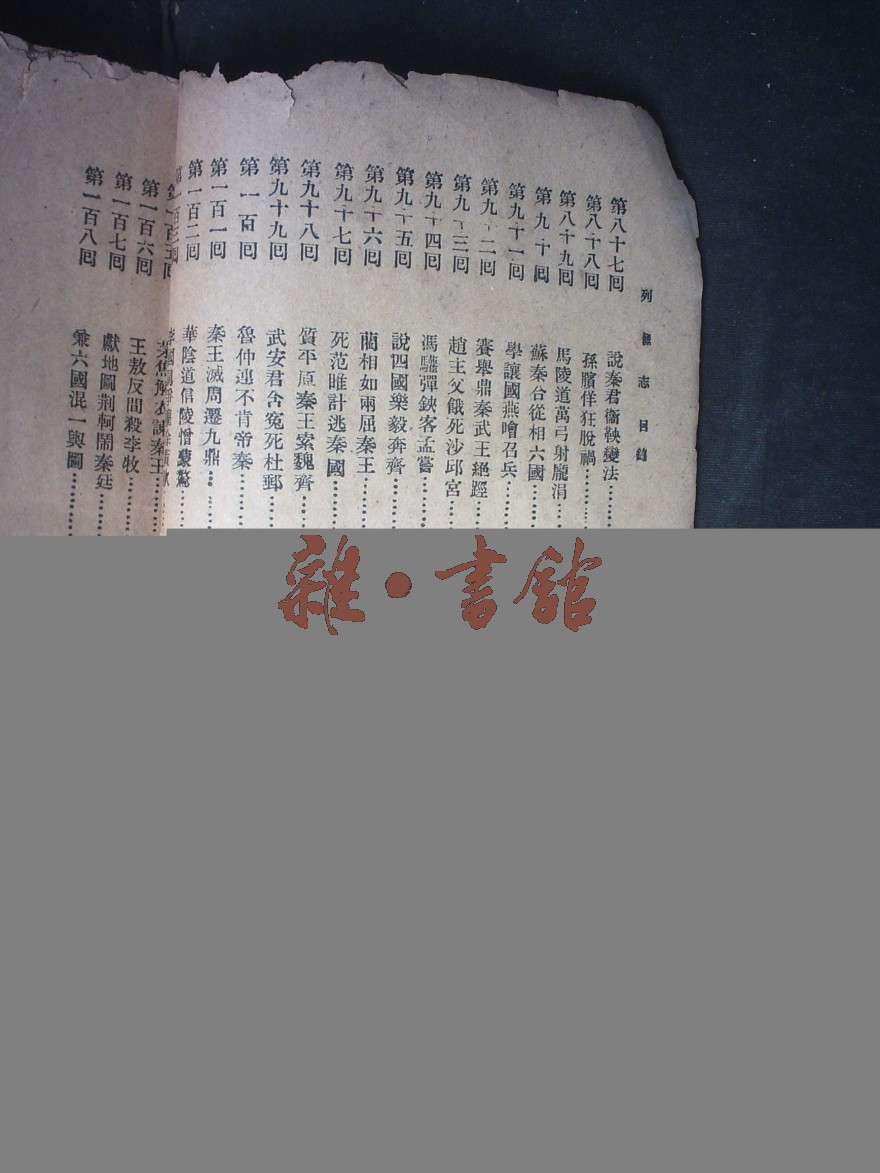 列國志目錄
第八十七回 說秦君衞鞅變法
第八十八回 孫臏佯狂脫禍
第八十九回 馬陵道萬弓射龐涓
第九十回 蘇秦合從相六國
第九十一回 學讓國燕噲召兵
第九十二回 賽舉鼎秦武王絕脛
第九十三回 趙主父餓死沙邱宮
第九十四回 馮驩彈鋏客孟嘗
第九十五回 說四國樂毅奔齊
第九十六回 藺相如兩屈秦王
第九十七回 死范雎計逃秦國
第九十八回 質平原秦王索魏齊
第九十九回 武安君含冤死杜郵
第一百回 魯仲連不肯帝秦
第一百一回 秦王滅周遷九鼎
第一百二回 華陰道信陵憎蒙驁
第一百三回
茅焦解衣諫秦王
第一百六回 王敖反間殺李牧
第一百七回 獻地圖荆柯鬧秦廷
第一百八回 兼六國混一輿圖
雜·書館